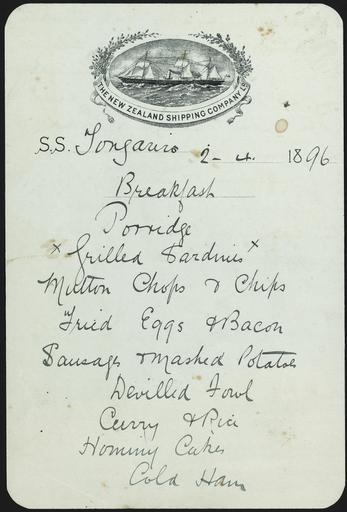 THE NEW ZEALAND SHIPPING COMPANY LD
S.S. Tongariro 2-4. 1896
Breakfast
Porridge
x Grilled Sardines x
Mutton Chops & Chips
Fried Eggs & Bacon
Sausages & Mashed Potatoes
Devilled Fowl
Curry & Rice
Hominy Cakes
Cold Ham